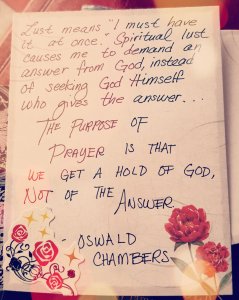 Lust means "I must have
it at once." Spiritual lust
causes me to demand an
answer from God, instead
of seeking God Himself
who gives the answer...
THE PURPOSE OF
PRAYER IS THAT
WE GET A HOLD OF GOD,
NOT OF THE ANSWER
- OSWALD
CHAMBERS